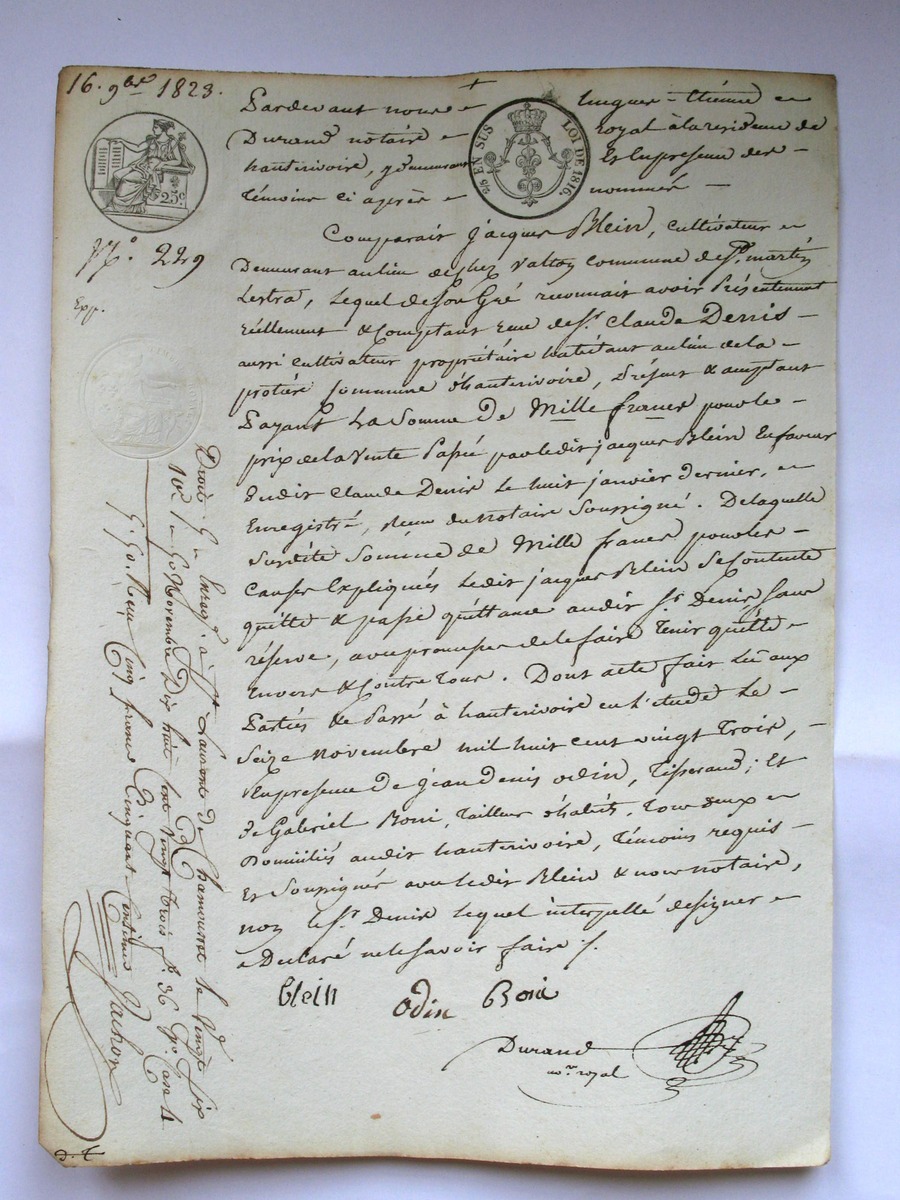 16. 9bre 1823.
25c
EN SUS
LOI DE 1816.
No. 229
Exp.
Pardevant nous hugues Etienne
Durand notaire royal à la residence de
hauterivoire, Et En presence des
témoins ci après nommés
Comparait jacques Blein, cultivateur
Demeurant au lieu de chez Vallon commune de St. martin
Lestra, Lequel de son Gré reconnait avoir Présentement
réellement & Comptant reçu de Sr. Claude Denis
aussi cultivateur propriétaire habitant au lieu de la
protière Commune d'hauterivoire, Présent & acceptant
Payant La Somme De Mille francs pour le
prix de la Vente Passé par ledit jacques Blein En faveur
dudit Claude Denis Le huit janvier Dernier,
Enregistré, reçu du Notaire Soussigné. De laquelle
Susdite Somme de Mille francs pour les
Causes Expliqués Ledit jacques Blein Se Contente
quitte & passe quittance audit Sr. Denis Sans
réserve, avec promesse de le faire Tenir quitte
Envers & Contre Tous. Dont acte fait Lû aux
Parties & Passé à hauterivoire en l'étude Le
Seize novembre mil huit cent vingt trois,
En presence de jean Denis odin, Tisserand; Et
de Gabriel Boni, Tailleur d'habits, Tous deux
Domiciliés audit hauterivoire, Témoins requis
Et Soussignés avec ledit Blein & nous notaire,
non le Sr. Denis Lequel interpellé de signer
a Declaré ne le Savoir faire ./.
blein
odin
Boni
Durand
nore. royal
Enregé. à St. Laurent de Chamousset le Vingt six
Novembre Dix huit Cent Vingt trois fo. 36 Vo. Case 4
Reçu Cinq francs Cinquante Centimes
Vachon